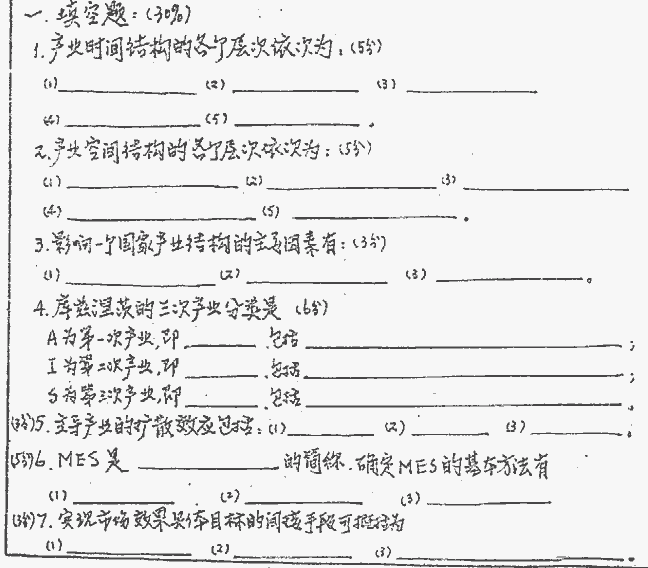 一. 填空题:(30%)
1. 产业时间结构的各个层次依次为:(5分)
(1)________ (2)________ (3)________
(4)________ (5)________.
2. 产业空间结构的各个层次依次为:(5分)
(1)________ (2)________ (3)________
(4)________ (5)________.
3. 影响一个国家产业结构的主要因素有:(3分)
(1)________ (2)________ (3)________。
4. 库兹涅茨的三次产业分类是 (6分)
A为第一次产业,即________ 包括________;
I为第二次产业,即________ 包括________;
S为第三次产业,即________ 包括________.
(3分)5. 主导产业的扩散效应包括:(1)________ (2)________ (3)________.
(5分)6. MES是________的简称.确定MES的基本方法有
(1)________ (2)________ (3)________
(3分)7. 实现市场效果具体目标的间接手段可概括为
(1)________ (2)________ (3)________.